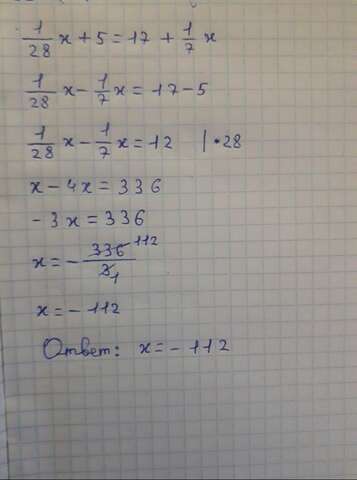 1/28 x + 5 = 17 + 1/7 x
1/28 x - 1/7 x = 17 - 5
1/28 x - 1/7 x = 12 | • 28
x - 4x = 336
- 3x = 336
x = - 336 112 / 3 1
x = - 112
Ответ: x = - 112